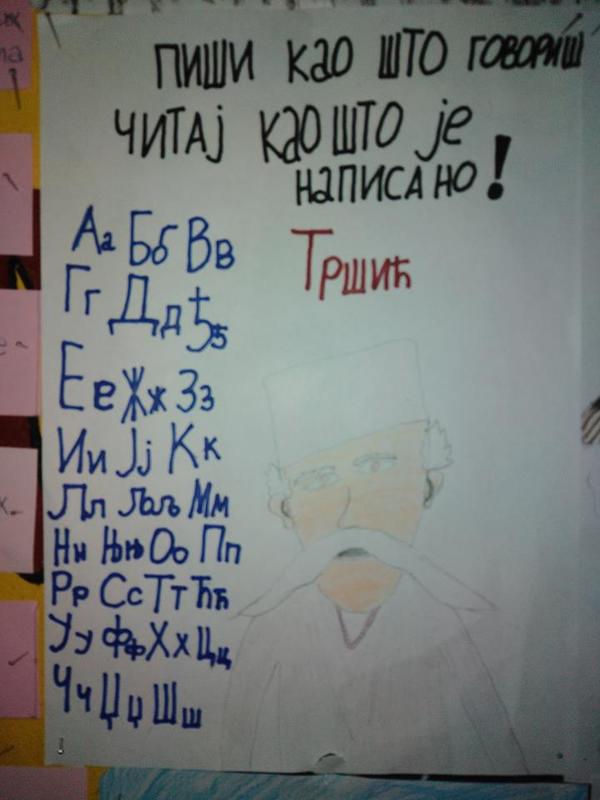 ПИШИ КАО ШТО ГОВОРИШ
ЧИТАЈ КАО ШТО ЈЕ
НАПИСАНО!
Тршић
Аа Бб Вв
Гг Дд Ђђ
Ее Жж Зз
Ии Јј Кк
Лл Љљ Мм
Нн Њњ Оо Пп
Рр Сс Тт Ћћ
Уу Фф Хх Цц
Чч Џџ Шш